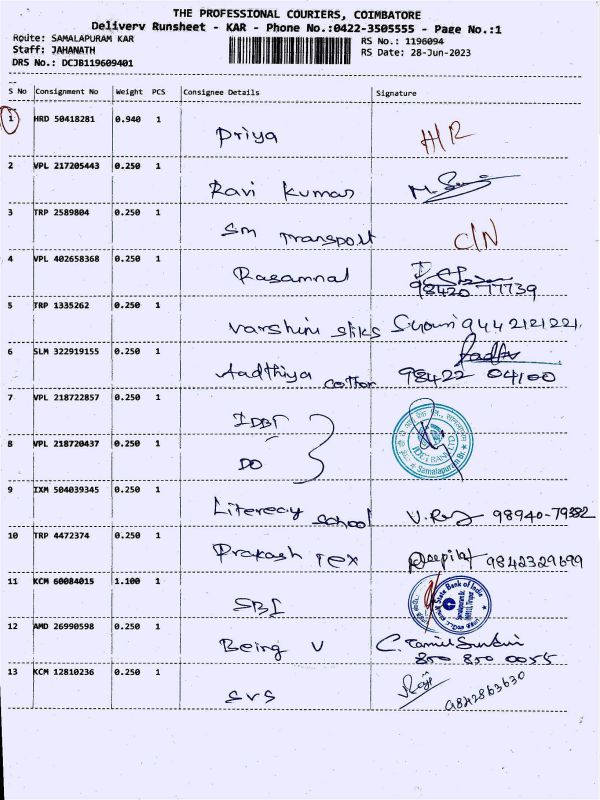 THE PROFESSIONAL COURIERS, COIMBATORE
Delivery Runsheet - KAR - Phone No.:0422-3505555 - Page No.:1
Route: SAMALAPURAM KAR
Staff: JAHANATH
DRS No.: DCJB119609401
RS No.: 1196094
RS Date: 28-Jun-2023
S No Consignment No Weight PCS Consignee Details Signature
1 HRD 50418281 0.940 1
Priya H/R
2 VPL 217205443 0.250 1
Ravi Kumar
3 TRP 2589804 0.250 1
Sm Transport C/N
4 VPL 402658368 0.250 1
Rasammal 98420 77739
5 TRP 1335262 0.250 1
Varshini 9442121221.
6 SLM 322919155 0.250 1
Aadthiya cotton 98422 04100
7 VPL 218722857 0.250 1
IDBI
8 VPL 218720437 0.250 1
DO
IDBI BANK LTD.
Samalapuram Br.
9 IXM 504039345 0.250 1
Literecy school V. Raj 98940-79382
10 TRP 4472374 0.250 1
Prakash Tex Deepika 9842329699
11 KCM 60084015 1.100 1
SBI
State Bank of India
12 AMD 26990598 0.250 1
Being V
850 850 0055
13 KCM 12810236 0.250 1
SVS Raji 9842863630